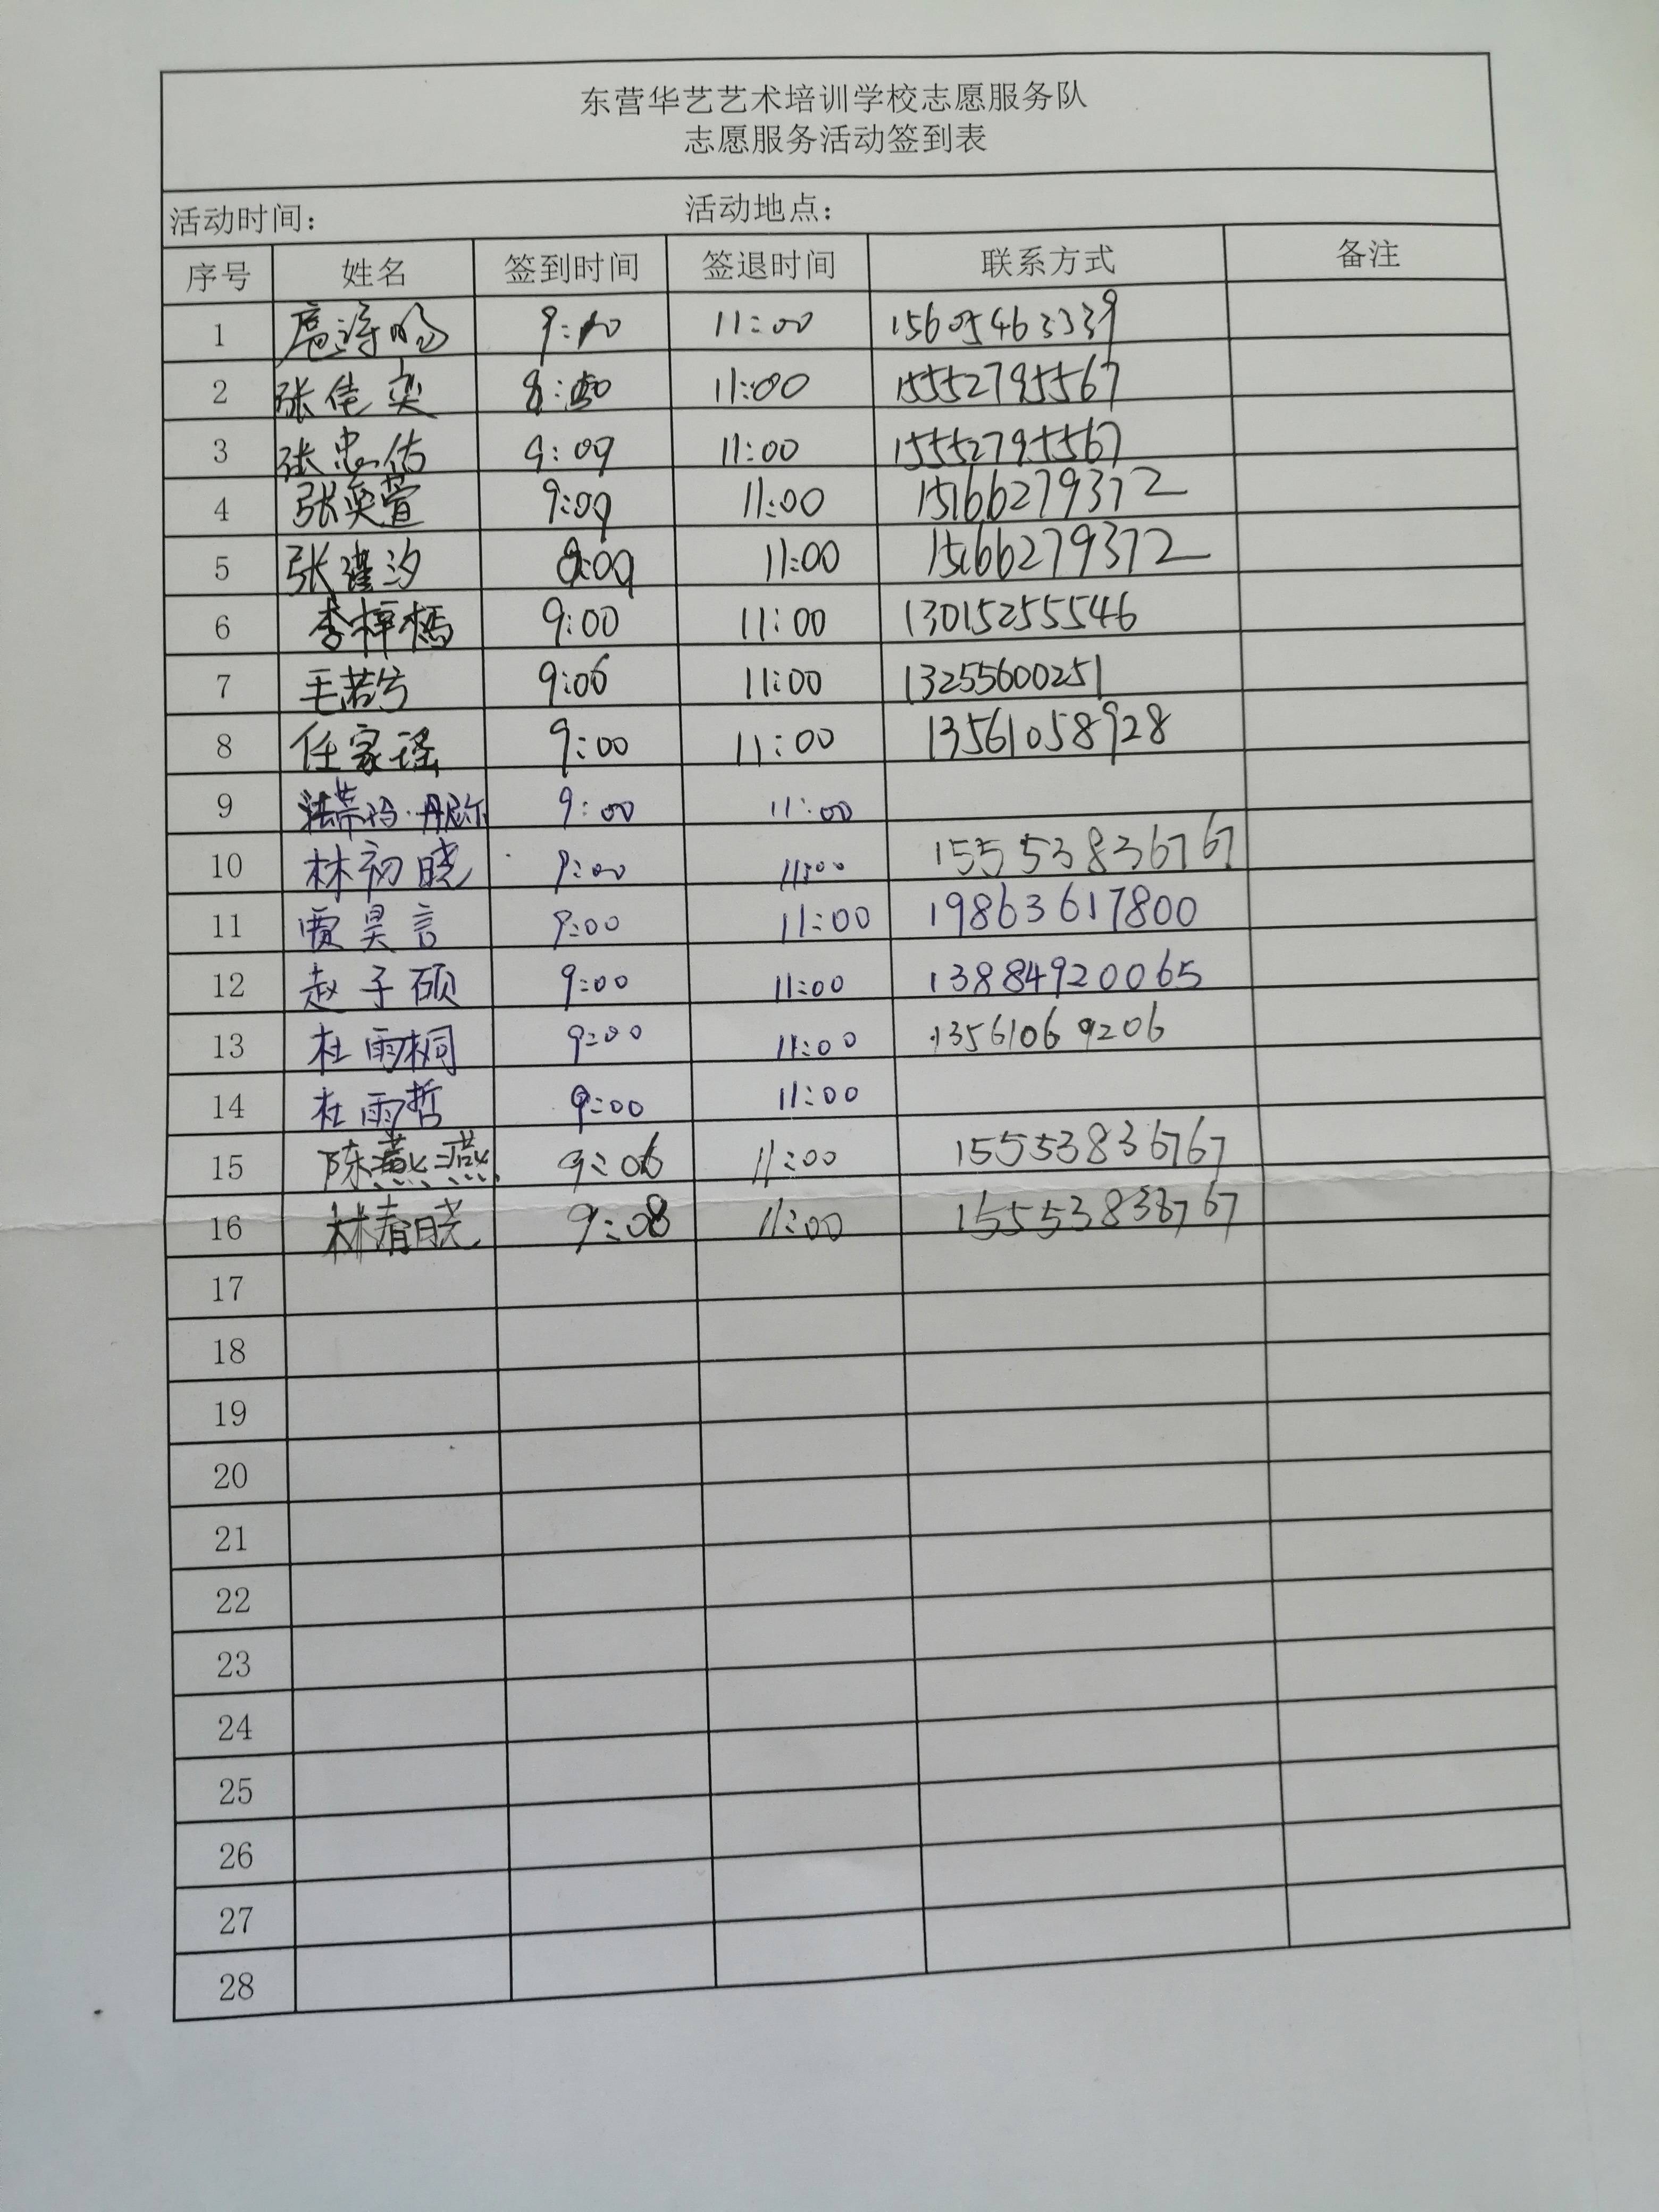 东营华艺艺术培训学校志愿服务队
志愿服务活动签到表
活动时间: 活动地点:
序号 姓名 签到时间 签退时间 联系方式 备注
1 11:00 15605463339
2 张佳奕 11:00 15552795567
3 张忠佑 9:09 11:00 15552795567
4 张奕萱 9:09 11:00 15166279372
5 张瑾汐 11:00 15166279372
6 李梓 9:00 11:00 13015255546
7 毛若兮 9:06 11:00 13255600251
8 任家瑶 9:00 11:00 13561058928
9 9:00 11:00
10 林初晓 9:00 11:00 15553836767
11 贾昊言 9:00 11:00 19863617800
12 赵子硕 9:00 11:00 13884920065
13 杜雨桐 9:00 11:00 13561069206
14 杜雨哲 9:00 11:00
15 陈燕燕 9:06 11:00 15553836767
16 林春晓 9:08 11:00
17
18
19
20
21
22
23
24
25
26
27
28